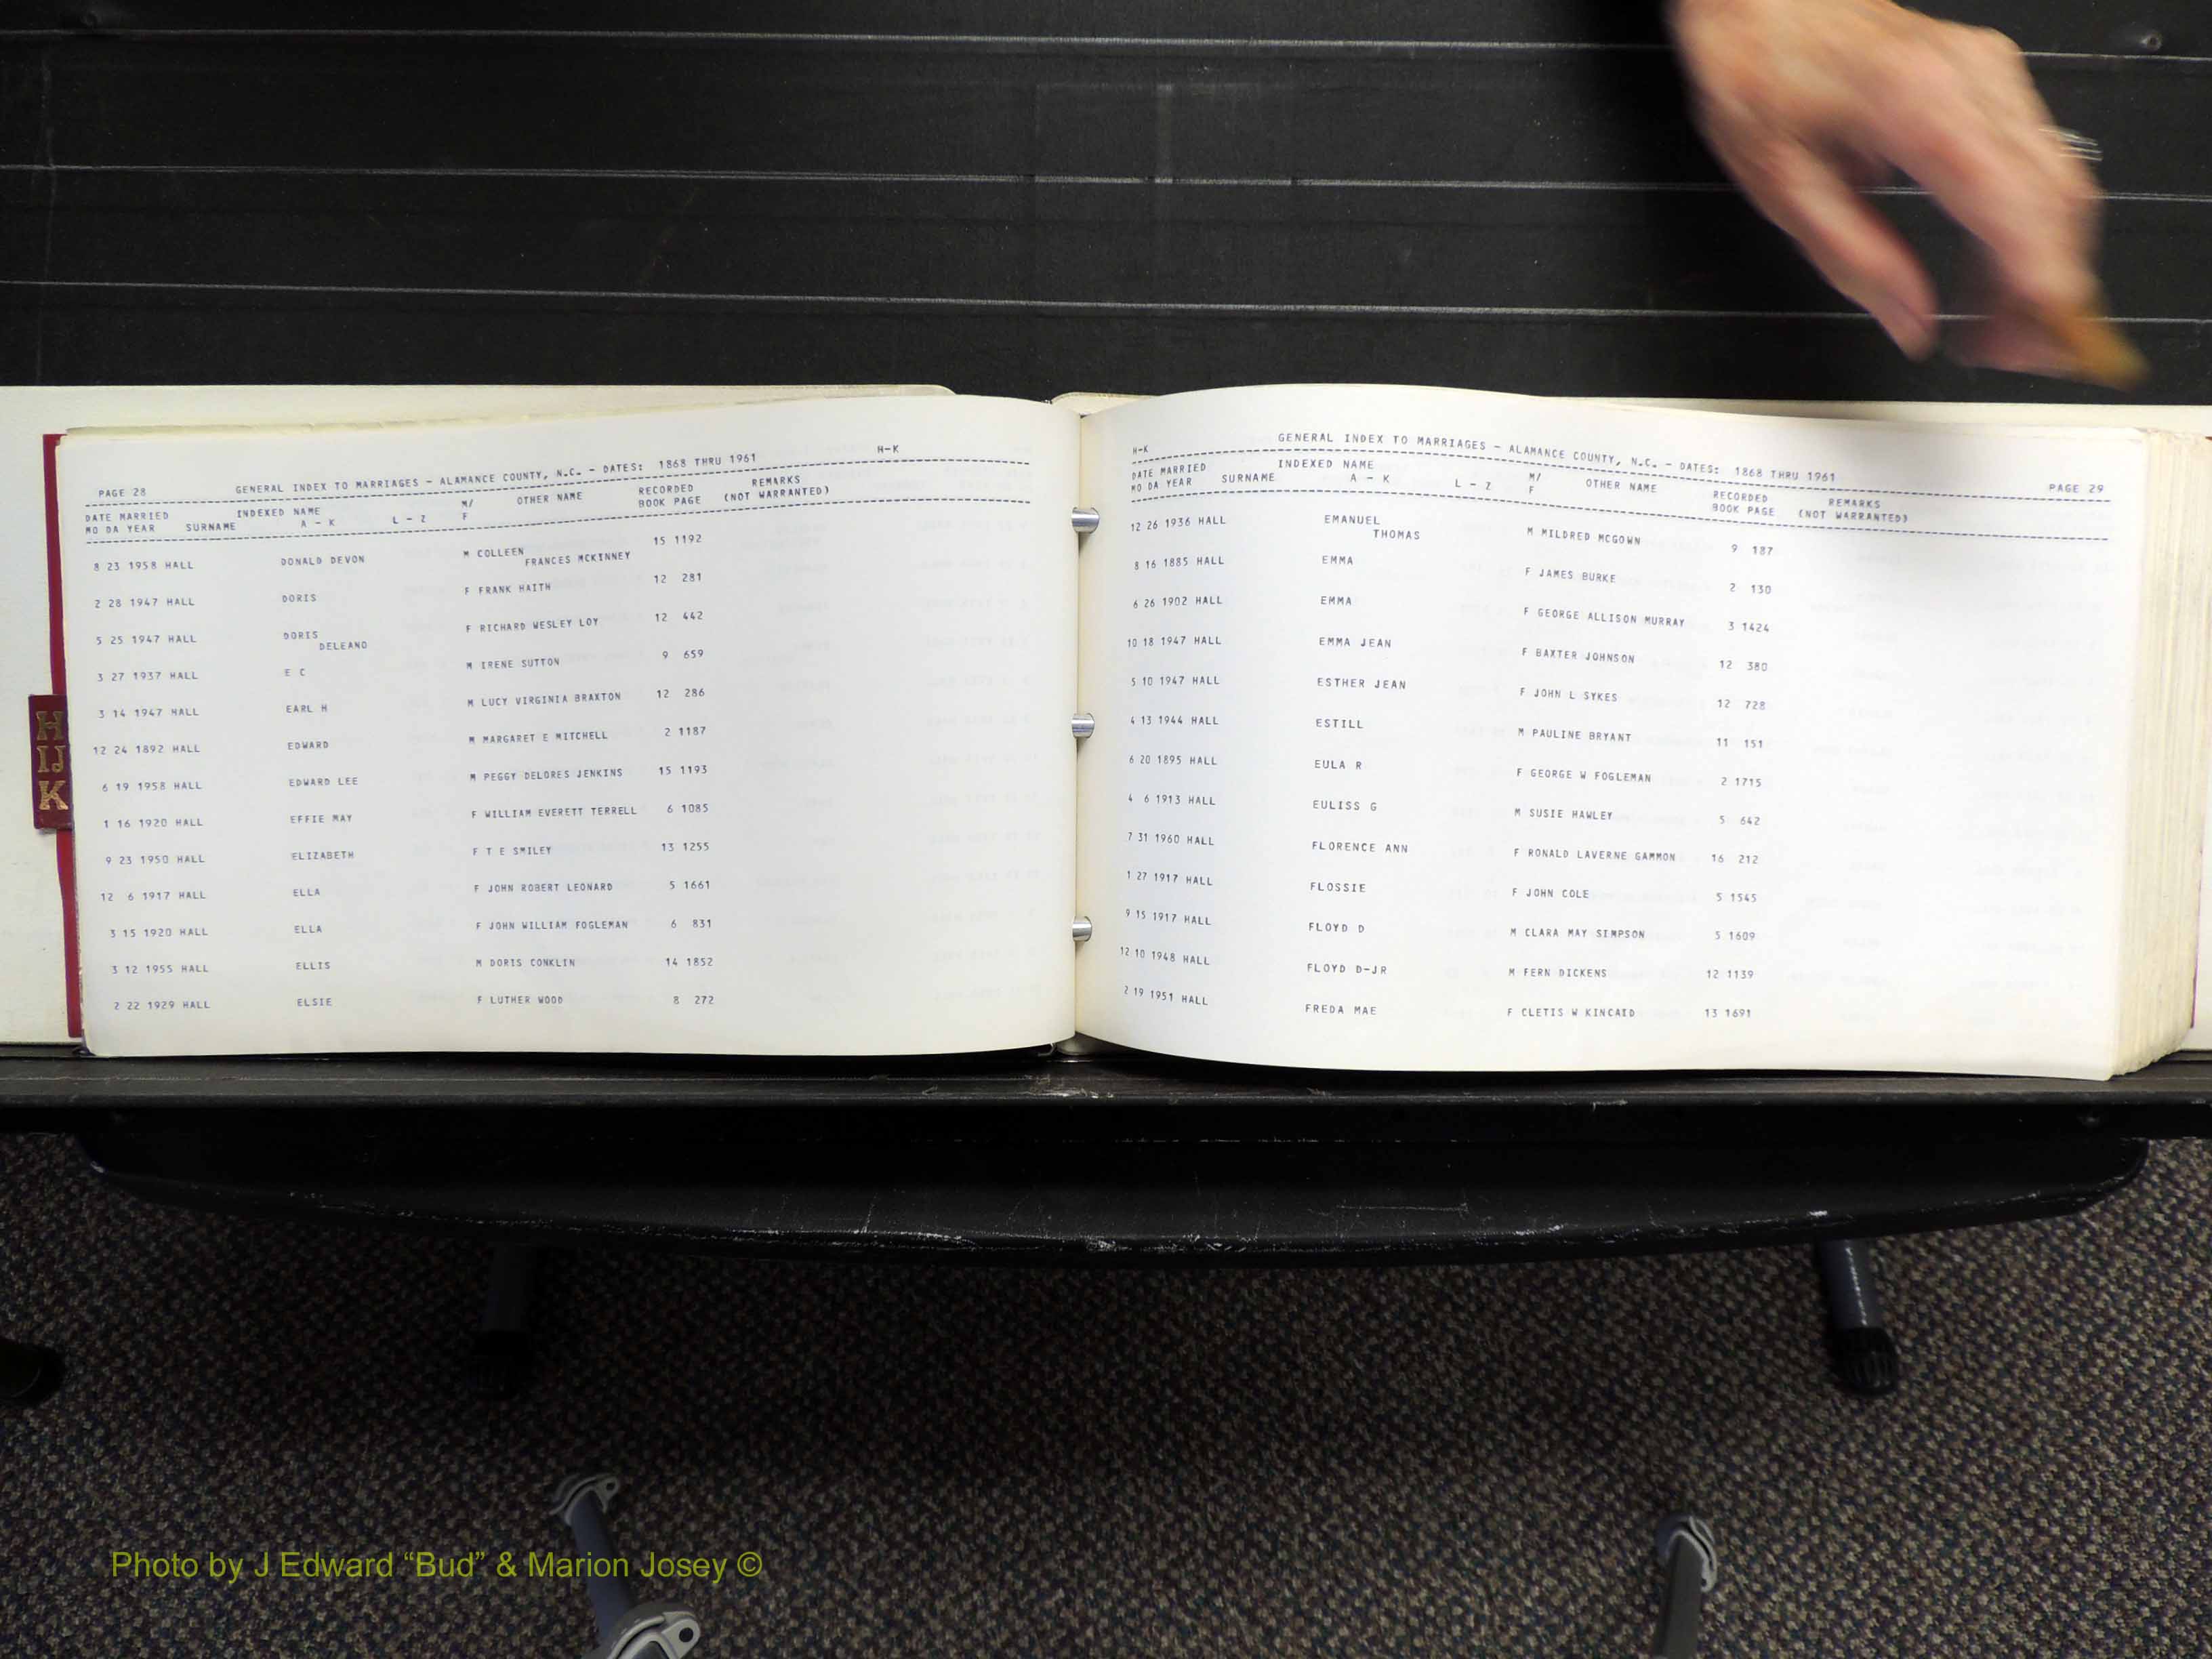 PAGE 28 GENERAL INDEX TO MARRIAGES - ALAMANCE COUNTY, N.C. - DATES: 1868 THRU 1961 H-K
DATE MARRIED INDEXED NAME M/ OTHER NAME RECORDED REMARKS
MO DA YEAR SURNAME A - K L - Z F BOOK PAGE (NOT WARRANTED)
8 23 1958 HALL DONALD DEVON M COLLEEN 15 1192
FRANCES MCKINNEY
2 28 1947 HALL DORIS F FRANK HAITH 12 281
5 25 1947 HALL DORIS F RICHARD WESLEY LOY 12 442
DELEANO
3 27 1937 HALL E C M IRENE SUTTON 9 659
3 14 1947 HALL EARL H M LUCY VIRGINIA BRAXTON 12 286
12 24 1892 HALL EDWARD M MARGARET E MITCHELL 2 1187
6 19 1958 HALL EDWARD LEE M PEGGY DELORES JENKINS 15 1193
1 16 1920 HALL EFFIE MAY F WILLIAM EVERETT TERRELL 6 1085
9 23 1950 HALL ELIZABETH F T E SMILEY 13 1255
12 6 1917 HALL ELLA F JOHN ROBERT LEONARD 5 1661
3 15 1920 HALL ELLA F JOHN WILLIAM FOGLEMAN 6 831
3 12 1955 HALL ELLIS M DORIS CONKLIN 14 1852
2 22 1929 HALL ELSIE F LUTHER WOOD 8 272
H-K GENERAL INDEX TO MARRIAGES - ALAMANCE COUNTY, N.C. - DATES: 1868 THRU 1961 PAGE 29
DATE MARRIED INDEXED NAME M/ OTHER NAME RECORDED REMARKS
MO DA YEAR SURNAME A - K L - Z F BOOK PAGE (NOT WARRANTED)
12 26 1936 HALL EMANUEL M MILDRED MCGOWN 9 187
THOMAS
8 16 1885 HALL EMMA F JAMES BURKE 2 130
6 26 1902 HALL EMMA F GEORGE ALLISON MURRAY 3 1424
10 18 1947 HALL EMMA JEAN F BAXTER JOHNSON 12 380
5 10 1947 HALL ESTHER JEAN F JOHN L SYKES 12 728
4 13 1944 HALL ESTILL M PAULINE BRYANT 11 151
6 20 1895 HALL EULA R F GEORGE W FOGLEMAN 2 1715
4 6 1913 HALL EULISS G M SUSIE HAWLEY 5 642
7 31 1960 HALL FLORENCE ANN F RONALD LAVERNE GAMMON 16 212
1 27 1917 HALL FLOSSIE F JOHN COLE 5 1545
9 15 1917 HALL FLOYD D M CLARA MAY SIMPSON 5 1609
12 10 1948 HALL FLOYD D-JR M FERN DICKENS 12 1139
2 19 1951 HALL FREDA MAE F CLETIS W KINCAID 13 1691
H
IJ
K
Photo by J Edward “Bud” & Marion Josey ©